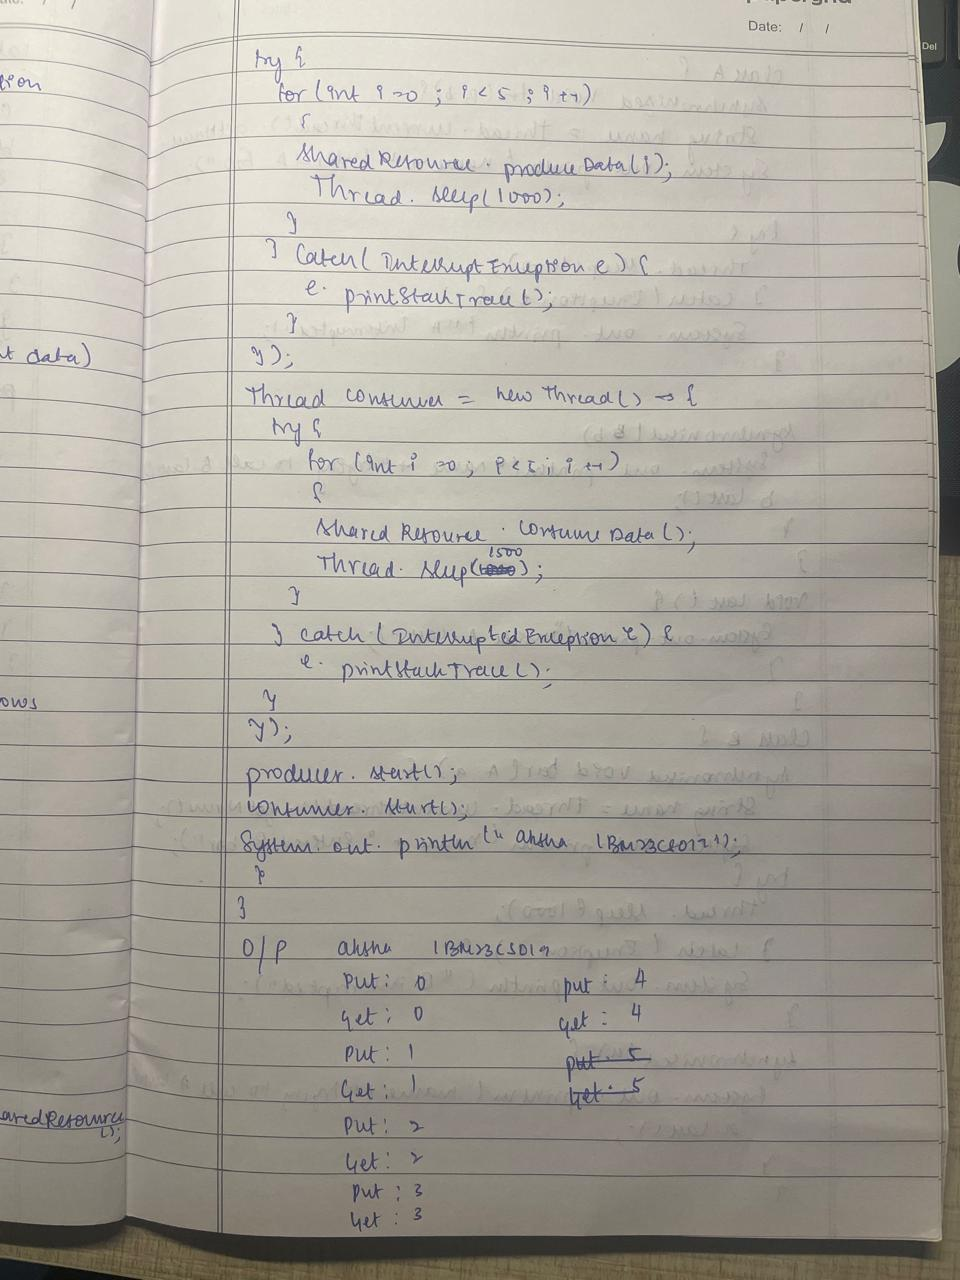 Date: / /
Del
tion
try {
for (int i=0 ; i < 5 ; i++)
{
sharedResource . produceData(i);
Thread . sleep(1000);
}
} catch( InterruptException e) {
e. printStackTrace();
}
});
t data)
Thread consumer = new Thread() -> {
try {
for (int i =0 ; i<5 ; i++)
{
sharedResource . consumeData();
Thread. sleep(1500);
}
} catch (InterruptedException e) {
e. printStackTrace();
}
});
ows
producer. start();
consumer. start();
System. out. println ("
}
}
O/P
Put: 0
Get: 0
Put: 1
Get: 1
Put: 2
Get: 2
Put : 3
Get : 3
put : 4
Get : 4
put : 5
Get : 5
aredResource
();